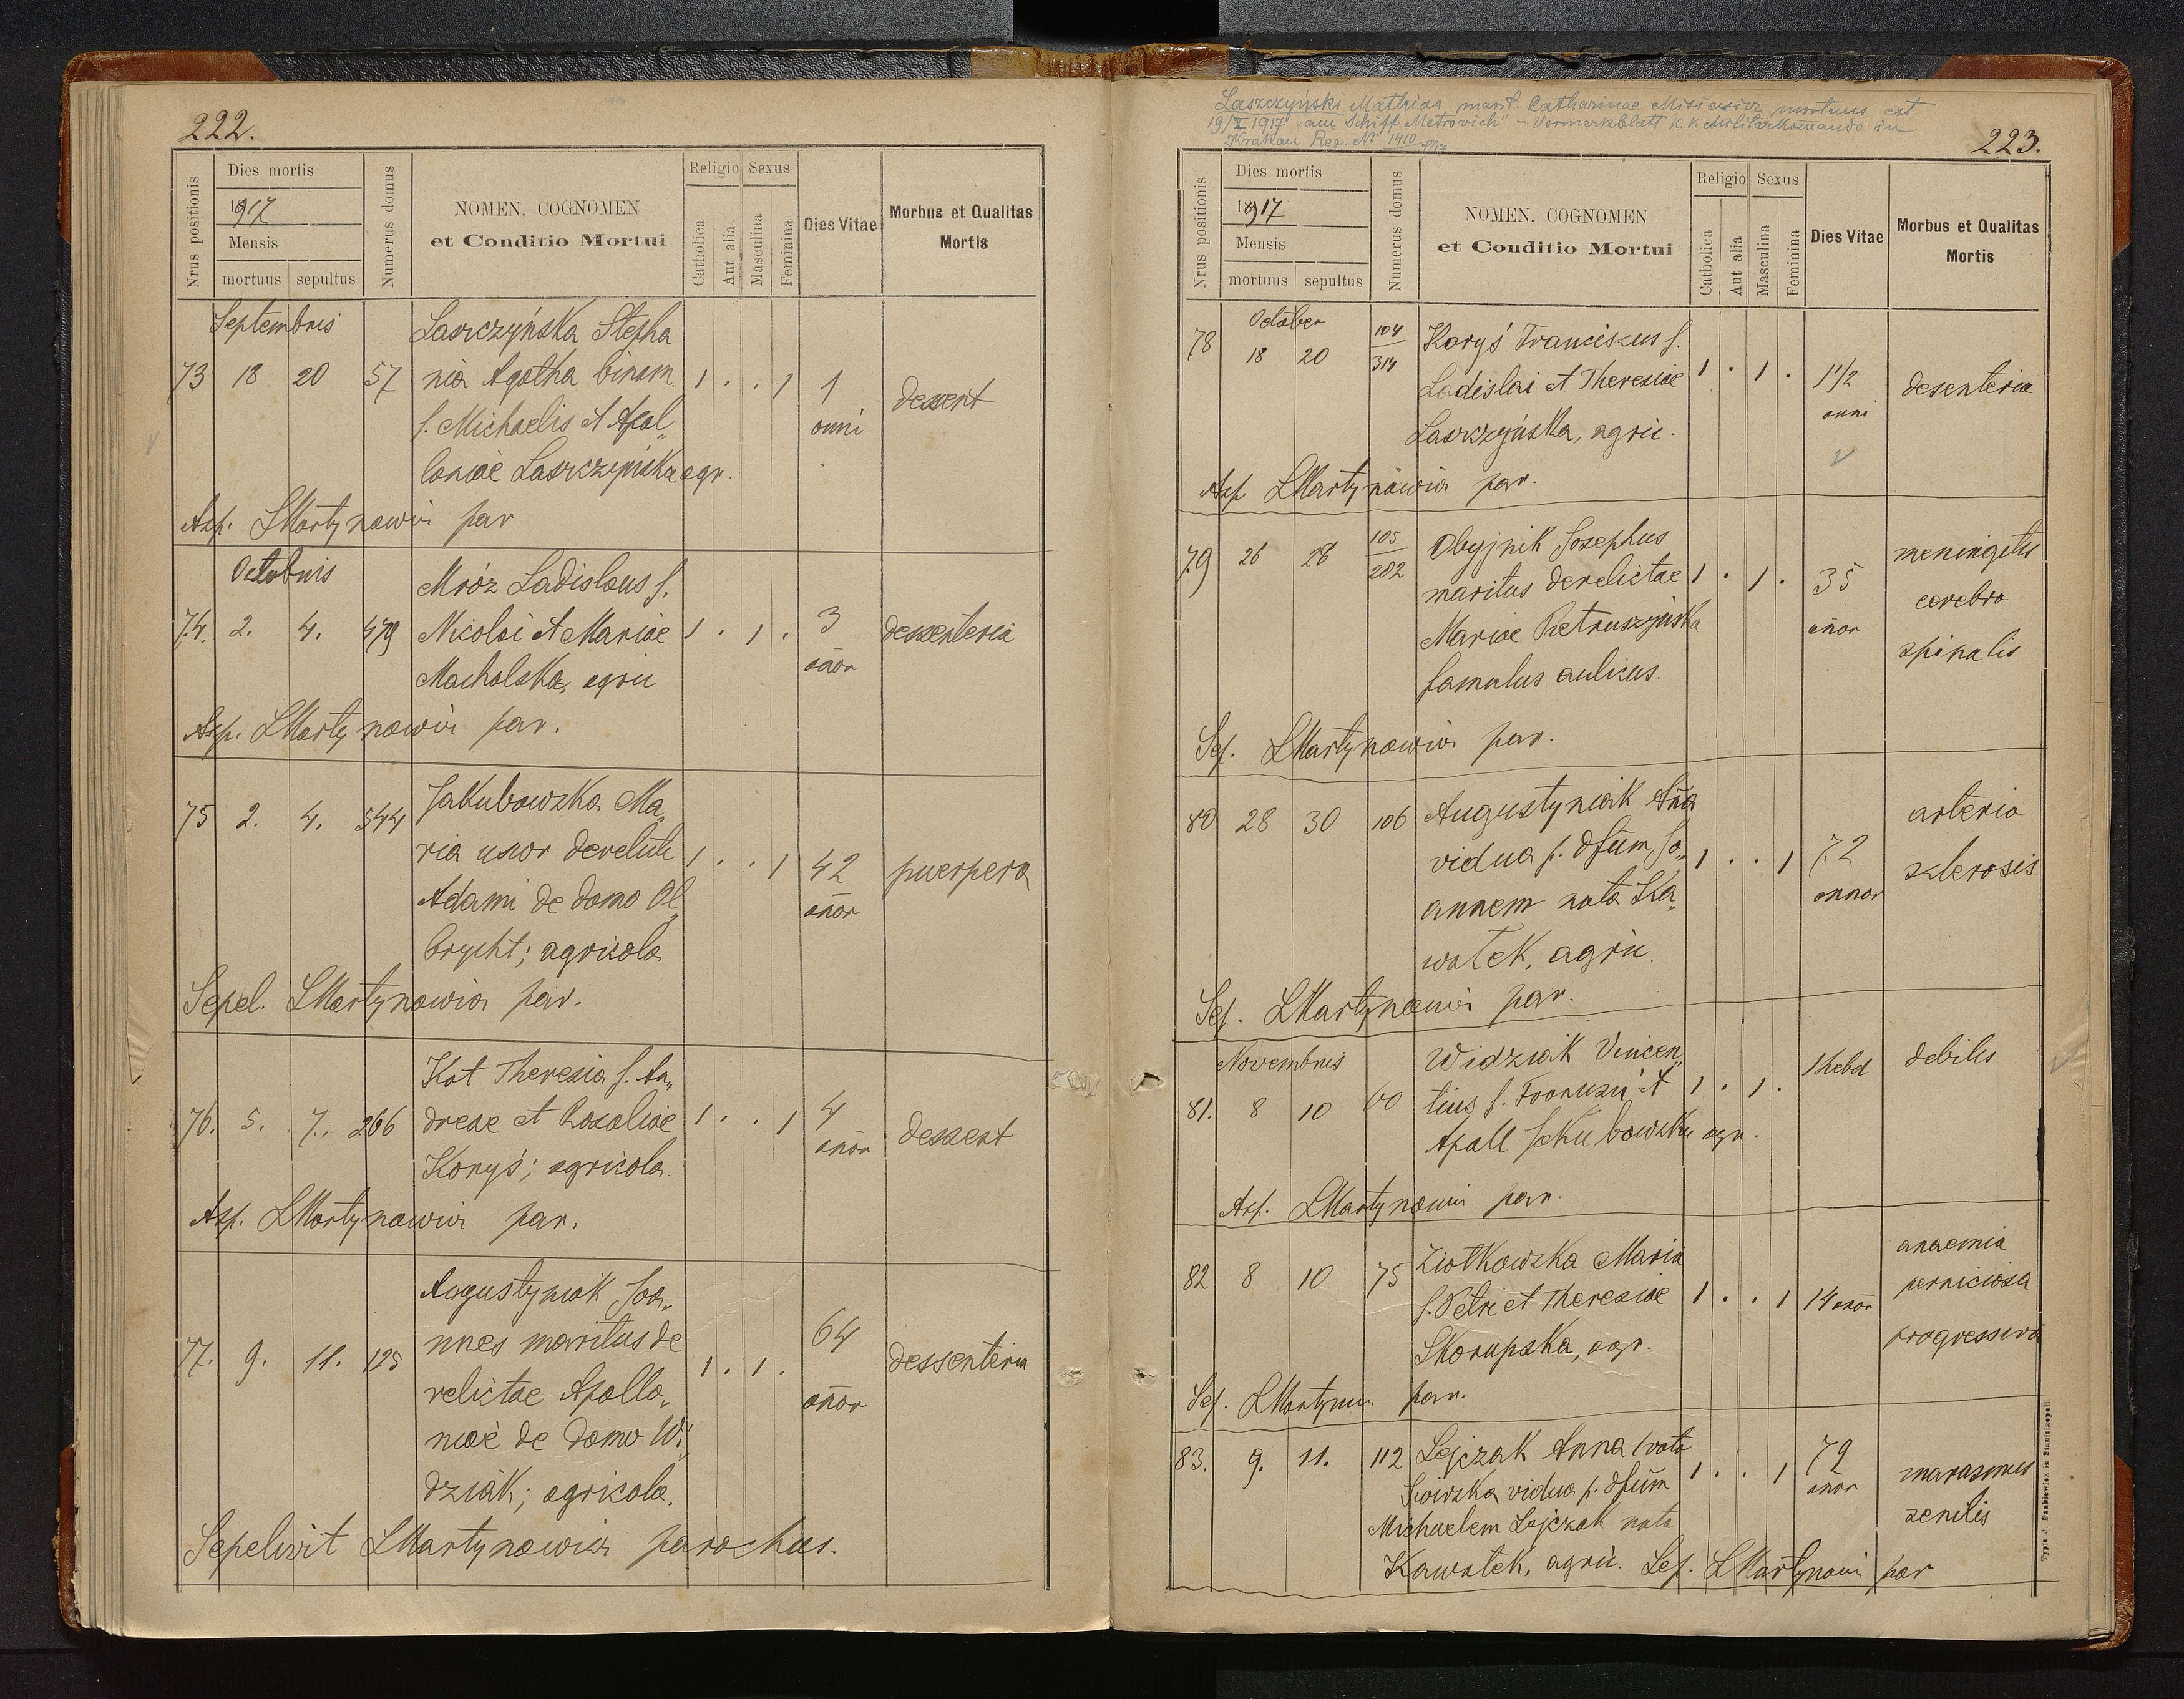 222.
Nrus positionis
Dies mortis
1917
Mensis
mortuus sepultus
Numerus domus
NOMEN, COGNOMEN
et Conditio Mortui
Religio Sexus
Catholica
Aut alia
Masculina
Feminina
Dies Vitae
Morbus et Qualitas
Mortis
Septembris
73 18 20 57
Laszczyńska Stepha
nia Agatha binom.
f. Michaelis et Apol„
loniae Laszczyńska agr.
1 . . 1
1
anni
dessent
Asp. LMartynowicz par
Octobris
74. 2. 4. 479
Mróz Ladislaus f.
Nicolai et Mariae
Macholska, agric
1 . 1 .
3
añor
dessenteria
Asp. LMartynowicz par.
75 2. 4. 544
Jakubowska Ma„
ria uxor derelicti
Adami de domo Ol„
brycht; agricola
1 . . 1
42
añor
puerpera
Sepel. LMartynowicz par.
76. 5. 7. 266
Kot Theresia f. An„
dreae et Rosaliae
Koryś; agricola.
1 . . 1
4
añor
dessent
Asp. LMartynowicz par.
77. 9. 11. 125
Augustyniak Joa„
nnes maritus de
relictae Apollo„
niae de domo Wi„
dziak; agricola.
1 . 1 .
64
añor
dessenteria
Sepelivit LMartynowicz parochus.
Laszczyński Mathias, marit. Catharinae Misiewicz mortuus est
19/X 1917 „am Schiff Metrovich" – Vormerkblatt k. k. Militärkomando in
Krakau Reg. No 1410
223.
Nrus positionis
Dies mortis
1917
Mensis
mortuus sepultus
Numerus domus
NOMEN, COGNOMEN
et Conditio Mortui
Religio Sexus
Catholica
Aut alia
Masculina
Feminina
Dies Vitae
Morbus et Qualitas
Mortis
October
78 18 20 104
314
Koryś Franciscus f.
Ladislai et Theresiae
Laszczyńska, agric.
1 . 1 .
1 1/2
anni
desenteria
Asp. LMartynowicz par.
79 26 28 105
202
Obyjnik Josephus
maritus derelictae
Mariae Pietruszyńska
famulus aulicus.
1 . 1 .
35
añor
meningitis
cerebro
spinalis
Sep. LMartynowicz par.
80 28 30 106
Augustyniak Aña
vidua p. dfum Jo„
annem nata Ka„
watek, agric.
1 . . 1
72
annor
arterio
sclerosis
Sep. LMartynowicz par.
Novembris
81. 8 10 60
Widziak Vincen„
tius f. Francisci et
Apoll Jakubowska agr.
1 . 1 .
1 hebd
debilis
Asp. LMartynowicz par.
82 8 10 75
Ziołkowska Maria
f. Petri et Theresiae
Skorupska, agr.
1 . . 1
14 añor
anaemia
perniciosa
progressiva
Sep. LMartynow par.
83. 9. 11. 112
Lejczak Anna 1 voto
Siwiska vidua p. dfum
Michaelem Lejczak nata
Kawatek, agric. Sep. LMartynowi par
1 . . 1
79
añor
marasmus
senilis